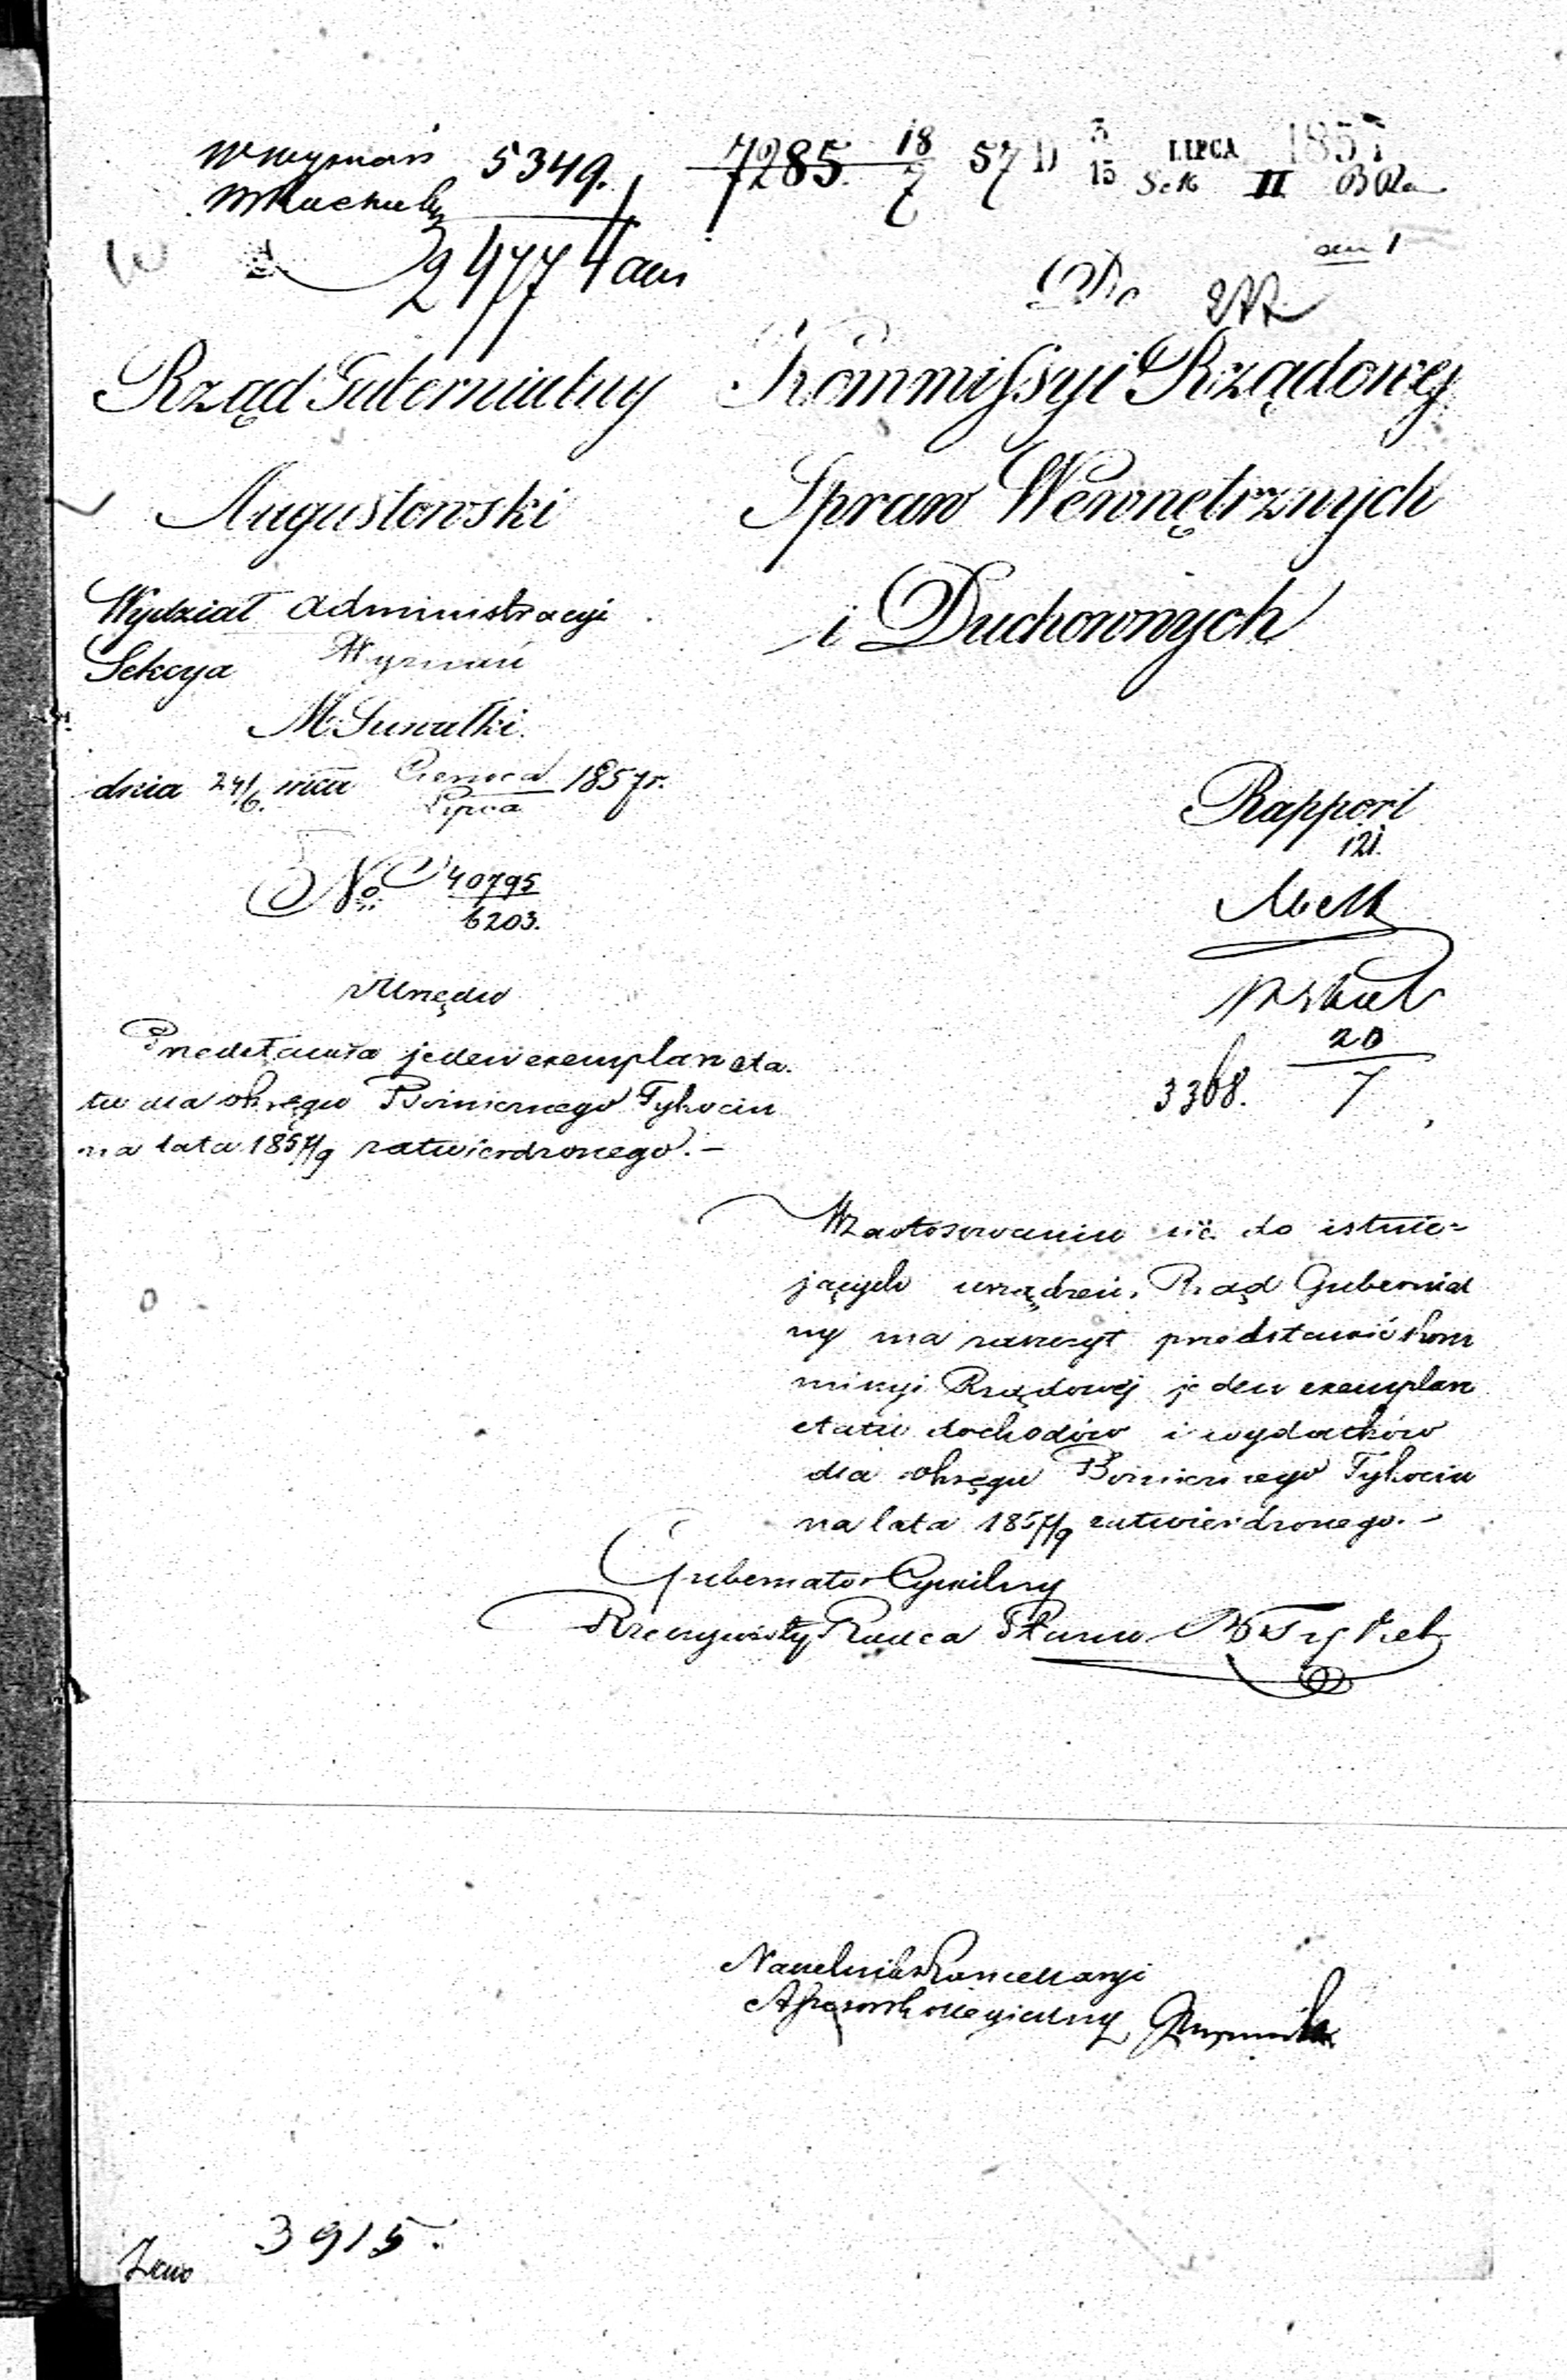 WWyznań 5349. 7285. 18/7 57 D 3/15 LIPCA 1857
Sek II
24774
Do
Rząd Gubernialny
Augustowski
Kommissyi Rządowej
Spraw Wewnętrznych
i Duchownych
Wydział Administracyi
Sekcya Wyznań
M. Suwałki.
dnia 24/6. mca Czerwca/Lipca 1857 r.
No 40795/6203.
Rapport
121.
20/7
3368.
Zurzędu
Przedstawia jeden exemplarz eta-
tu dla okręgu Bożniczego Tykocin
na lata 1857/9 zatwierdzonego. –
W zastosowaniu się do istnie=
jących urządzeń, Rząd Gubernial
ny ma zaszczyt przedstawić Kom
missyi Rządowej jeden exemplarz
etatu dochodów i wydatków
dla okręgu Bożniczego Tykocin
na lata 1857/9 zatwierdzonego. –
Gubernator Cywilny
Rzeczywisty Radca Stanu
Naczelnik Kancellaryi
Assessor Kollegialny
3915.